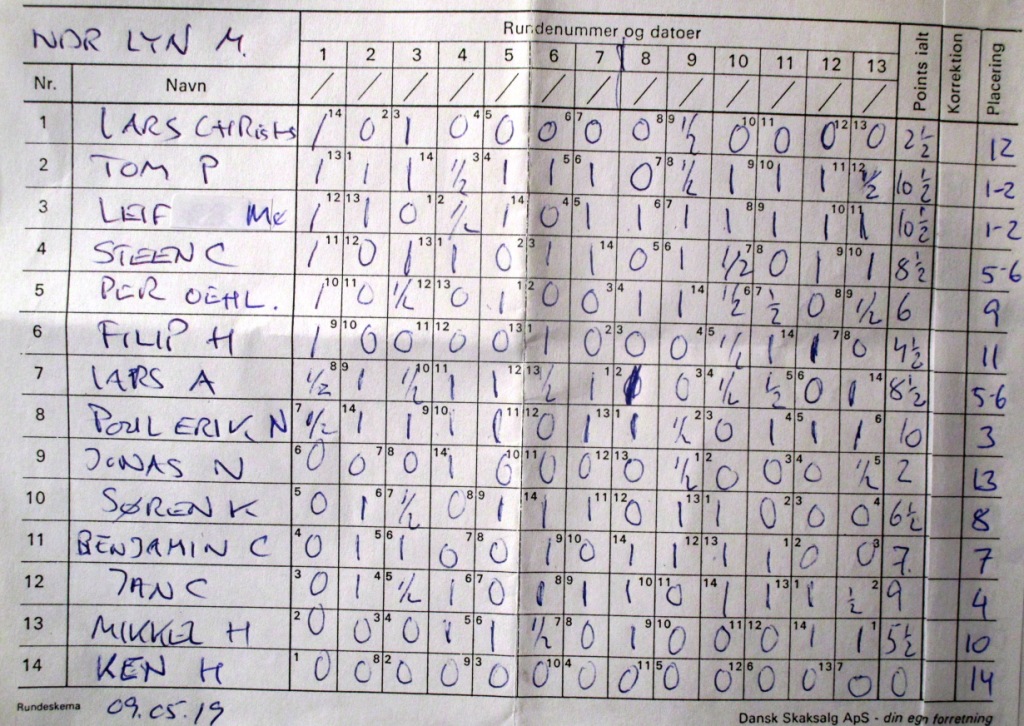 NDR LYN M.
Rundenummer og datoer
Points ialt
Korrektion
Placering
1 2 3 4 5 6 7 8 9 10 11 12 13
Nr. Navn / / / / / / / / / / / / /
1 LARS CHRISTS 1 14 0 2 3 1 0 4 5 0 0 6 7 0 0 8 9 ½ 0 10 11 0 0 12 13 0 2½ 12
2 TOM P 1 13 1 1 1 14 ½ 3 4 1 1 5 6 1 0 7 8 ½ 1 9 10 1 1 11 12 ½ 10½ 1-2
3 LEIF Mc 1 12 13 1 0 1 2 ½ 1 14 0 4 5 1 1 6 7 1 1 8 9 1 1 10 11 1 10½ 1-2
4 STEEN C 1 11 12 0 1 13 1 1 0 2 3 1 1 14 0 5 6 1 ½ 7 8 0 1 9 10 1 8½ 5-6
5 PER OEHL. 1 10 11 0 ½ 12 13 0 1 1 2 0 0 3 4 1 1 14 ½ 6 7 ½ 0 8 9 ½ 6 9
6 FILIP H 1 9 10 0 0 11 12 0 0 13 1 1 0 2 3 0 0 4 5 ½ 1 14 1 7 8 0 4½ 11
7 LARS A ½ 8 9 1 ½ 10 11 1 1 12 13 ½ 1 1 2 1 0 3 4 ½ ½ 5 6 0 1 14 8½ 5-6
8 POUL ERIK N 7 ½ 14 1 1 9 10 1 1 11 12 0 1 13 1 1 ½ 2 3 0 1 4 5 1 1 6 10 3
9 JONAS N 6 0 0 7 8 0 14 1 0 10 11 0 0 12 13 0 ½ 1 2 0 0 3 4 0 ½ 5 2 13
10 SØREN K 5 0 1 6 7 ½ 0 8 9 1 14 1 1 11 12 0 1 13 1 1 0 2 3 0 0 4 6½ 8
11 BENJAMIN C 4 0 1 5 6 1 0 7 8 0 1 9 10 0 14 1 1 12 13 1 1 1 2 0 0 3 7. 7
12 JAN C 3 0 1 4 5 ½ 1 6 7 0 1 8 9 1 1 10 11 0 14 1 1 13 1 1 ½ 2 9 4
13 MIKKEL H 2 0 0 3 4 0 1 5 6 1 ½ 7 8 0 1 9 10 0 0 11 12 0 14 1 1 1 5½ 10
14 KEN H 1 0 0 8 2 0 0 9 3 0 0 10 4 0 0 11 5 0 0 12 6 0 0 13 7 0 0 14
Rundeskema 09.05.19 Dansk Skaksalg ApS - din egn forretning